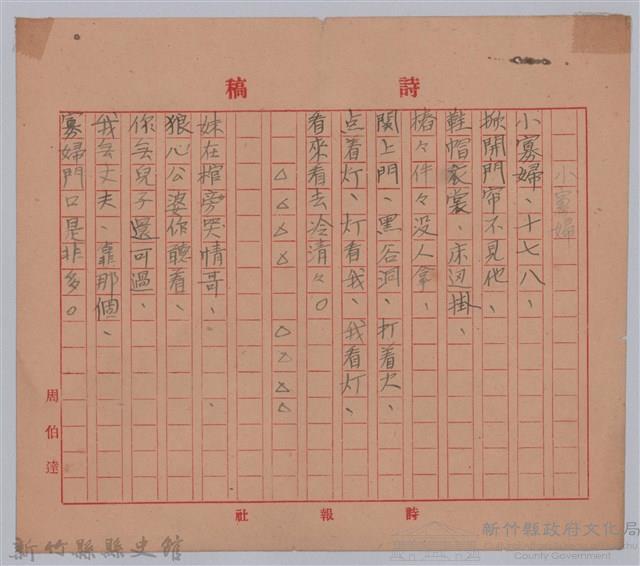 詩稿
小寡婦
小寡婦、十七八、
掀開門帘不見他、
鞋帽衣裳、床边掛、
樁々件々没人拿、
関上門、黑谷洞、打着火、
点着灯、灯看我、我看灯、
看來看去冷清々。
△△△△ △△△△
妹在棺旁哭情哥、
狠心公婆你聽着、
你無兒子還可過、
我無丈夫、靠那個、
寡婦門口是非多。
周伯達
詩報社
新竹縣縣史館
新竹縣政府文化局
County Government